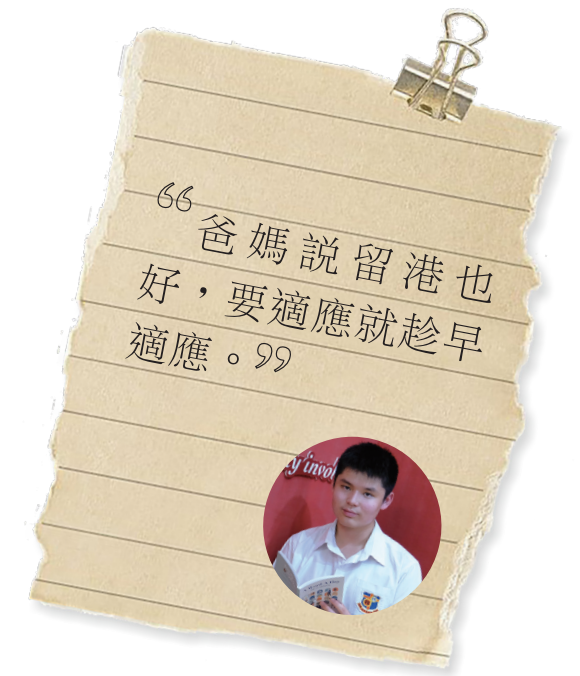 “爸媽説留港也
好，要適應就趁早
適應。”